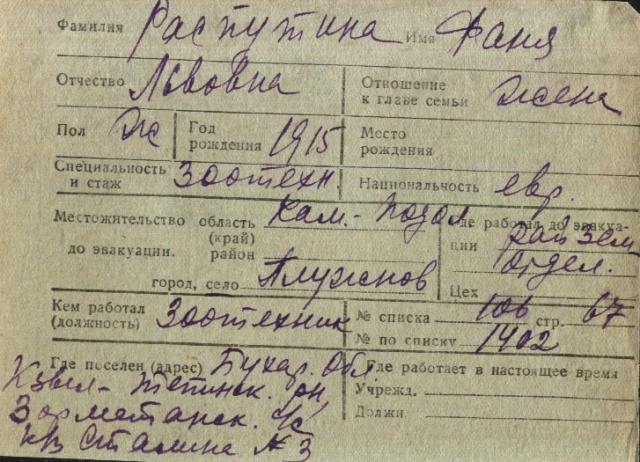 Фамилия Распутина Имя Фаня
Отчество Львовна Отношение к главе семьи жена
Пол Ж Год рождения 1915 Место рождения
Специальность и стаж Зоотехн. Национальность евр.
Местожительство область Кам.-Подол Где работал до эвакуа-
(край) ции Рай Зем
до эвакуации. район Отдел.
город, село Цех
Кем работал (должность) Зоотехник № списка 106 стр. 67
№ по списку 1402
Где поселен (адрес) Бухар. Обл Где работает в настоящее время
Кзыл-Тепинск. рн, Учрежд.
Зарметанск. с/с Должн.
к/з Сталина № 3